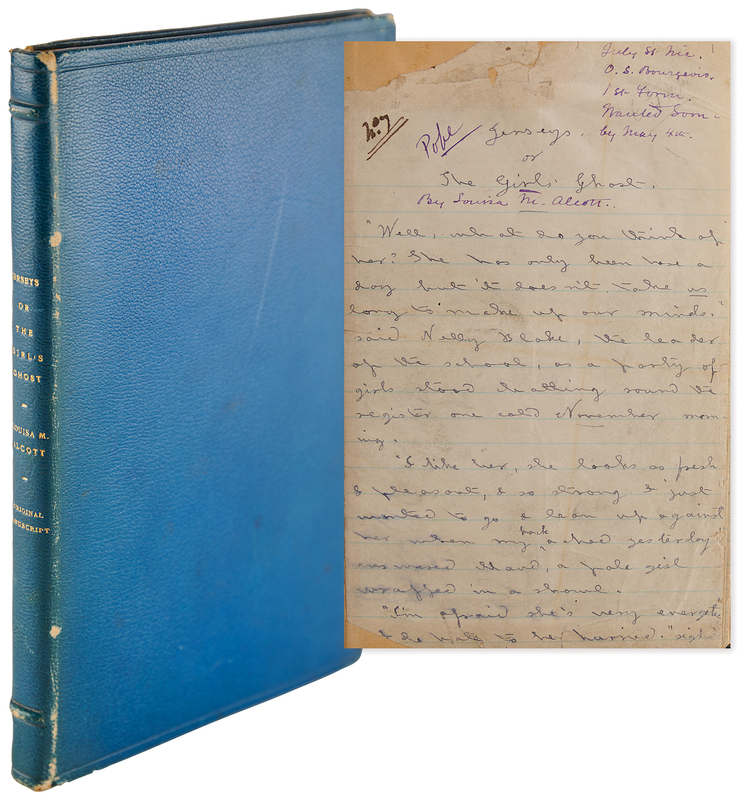 JERSEYS
OR
THE
GIRL'S
GHOST
LOUISA M.
ALCOTT
ORIGINAL
MANUSCRIPT
July St Nic.
O. S. Bourgeois.
1st Form.
Wanted Som-
by May 4th.
Pope
Jerseys.
or
The Girls' Ghost.
By Louisa M. Alcott.
"Well, what do you think of
her? She has only been here a
day but it does n't take us
long to make up our minds."
said Nelly Blake, the leader
of the school, as a party of
girls stood chatting round the
register one cold November morn-
ing.
"I like her, she looks so fresh
& pleasant, & so strong. I just
wanted to go & lean up against
her when my back ached yesterday."
answered Maud, a pale girl
wrapped in a shawl.
"I'm afraid she's very energetic
& I do hate to be hurried." sigh